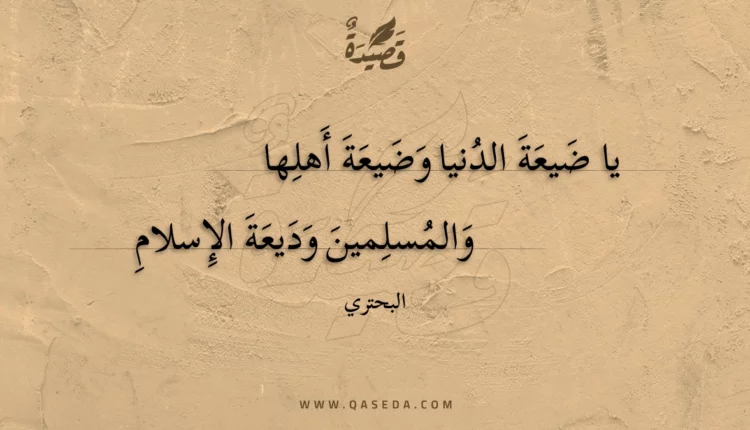 قَصِيدَةٌ
يا ضَيعَةَ الدُنيا وَضَيعَةَ أَهلِها
وَالمُسلِمينَ وَدَيعَةَ الإِسلامِ
البحتري
WWW.QASEDA.COM